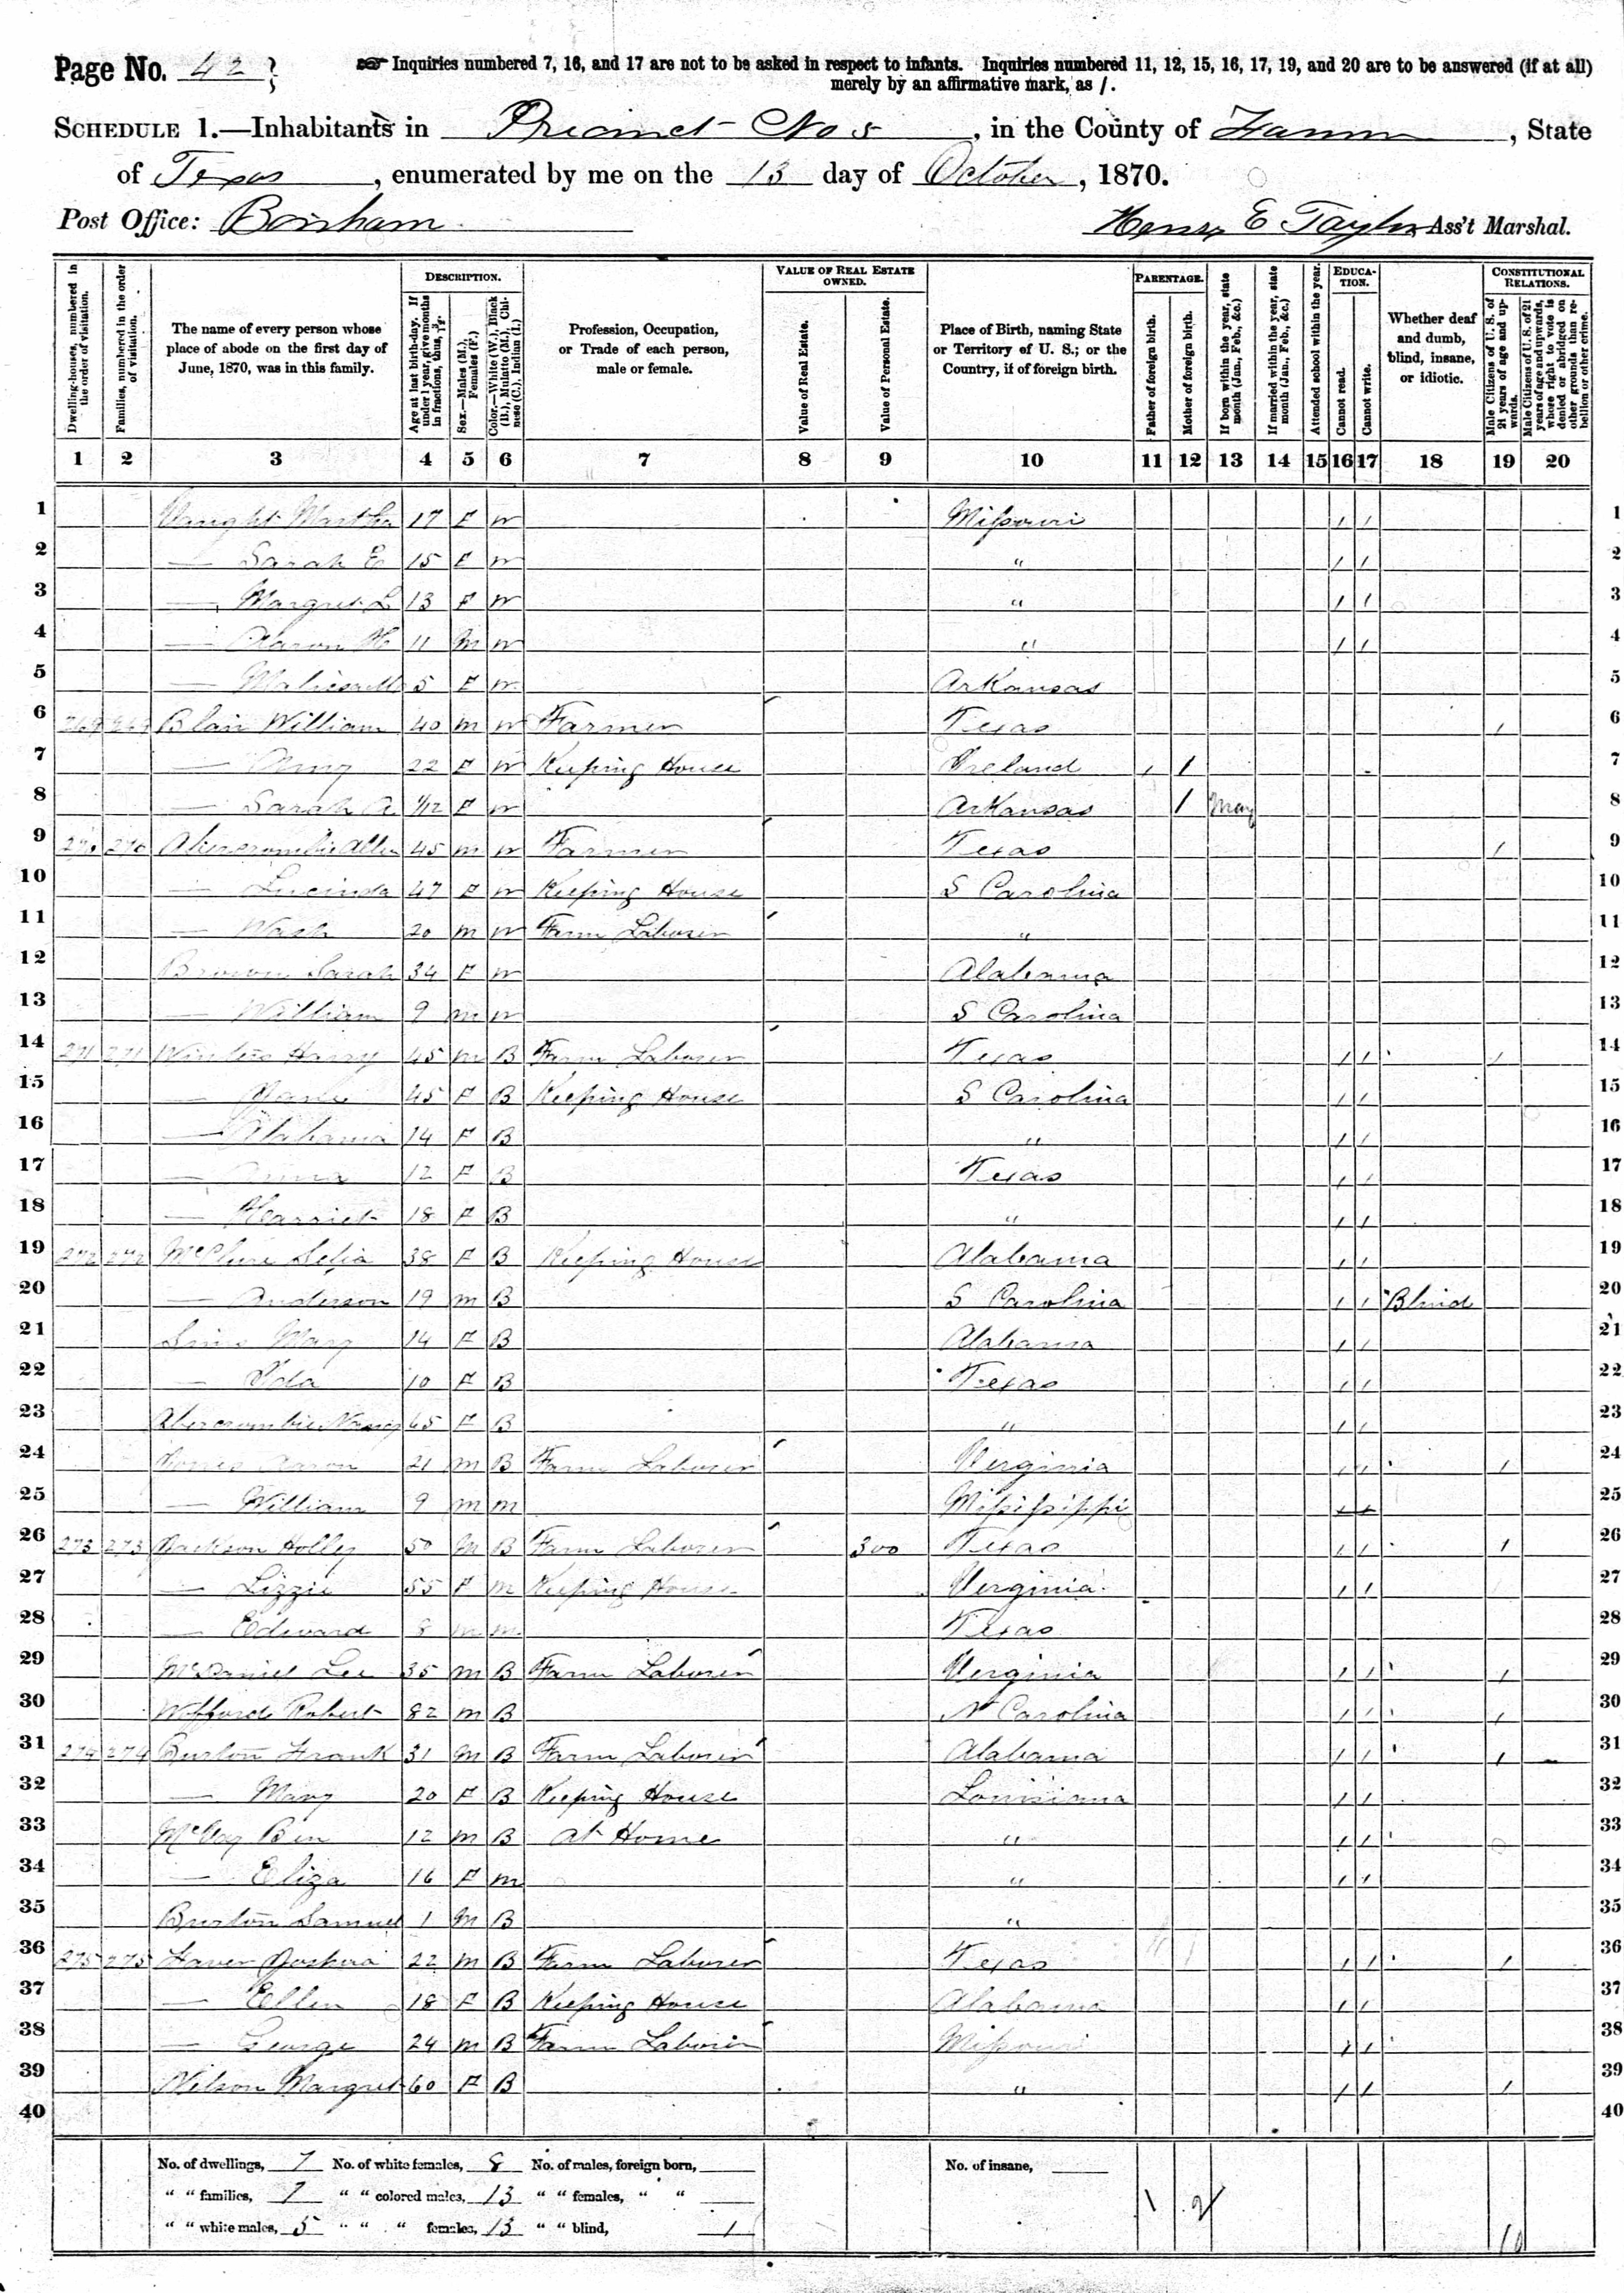 Page No. 42
Inquiries numbered 7, 16, and 17 are not to be asked in respect to infants. Inquiries numbered 11, 12, 15, 16, 17, 19, and 20 are to be answered (if at all)
merely by an affirmative mark, as /.
SCHEDULE 1.—Inhabitants in Precinct No 5, in the County of Fannin, State
of Texas, enumerated by me on the 13 day of October, 1870.
Post Office: Bonham
Henry E Taylor Ass't Marshal.
Dwelling-houses, numbered in the order of visitation.
Families, numbered in the order of visitation.
The name of every person whose place of abode on the first day of June, 1870, was in this family.
DESCRIPTION.
Age at last birth-day. If under 1 year, give months in fractions, thus, 3/12.
Sex.—Males (M.), Females (F.)
Color.—White (W.), Black (B.), Mulatto (M.), Chinese (C.), Indian (I.)
Profession, Occupation, or Trade of each person, male or female.
VALUE OF REAL ESTATE OWNED.
Value of Real Estate.
Value of Personal Estate.
Place of Birth, naming State or Territory of U. S.; or the Country, if of foreign birth.
PARENTAGE.
Father of foreign birth.
Mother of foreign birth.
If born within the year, state month (Jan., Feb., &c.)
If married within the year, state month (Jan., Feb., &c.)
Attended school within the year.
EDUCATION.
Cannot read.
Cannot write.
Whether deaf and dumb, blind, insane, or idiotic.
CONSTITUTIONAL RELATIONS.
Male Citizens of U. S. of 21 years of age and upwards.
Male Citizens of U. S. of 21 years of age and upwards, whose right to vote is denied or abridged on other grounds than rebellion or other crime.
1 2 3 4 5 6 7 8 9 10 11 12 13 14 15 16 17 18 19 20
1 Vaught Martha 17 F W Missouri / / 1
2 — Sarah E 15 F W " / / 2
3 — Margret L 13 F W " / / 3
4 — Aaron H 11 M W " / / 4
5 — 5 F W Arkansas 5
6 269 269 Blair William 40 M W Farmer Texas / 6
7 — Amy 22 F W Keeping House Ireland / / 7
8 — Sarah A 1/12 F W Arkansas / May 8
9 270 270 Abercrombie Allen 45 M W Farmer Texas / 9
10 — Lucinda 47 F W Keeping House S Carolina 10
11 — Wash 20 M W Farm Laborer " 11
12 Brown Sarah 34 F W Alabama 12
13 — William 9 M W S Carolina 13
14 271 271 Harry 45 M B Farm Laborer Texas / / / 14
15 — 45 F B Keeping House S Carolina / / 15
16 — Alabama 14 F B " / / 16
17 — Anna 12 F B Texas / / 17
18 — Harriet 18 F B " / / 18
19 272 272 McClure Selia 38 F B Keeping House Alabama / / 19
20 — Anderson 19 M B S Carolina / / Blind 20
21 Sims Mary 14 F B Alabama / / 21
22 — Ida 10 F B Texas / / 22
23 Abercrombie Nancy 65 F B " / / 23
24 Jones Aaron 21 M B Farm Laborer Verginia / / / 24
25 — William 9 M M Missississippi 25
26 273 273 Jackson Holley 50 M B Farm Laborer 300 Texas / / / 26
27 — Lizzie 55 F M Keeping House Verginia / / 27
28 — Edward 8 M M Texas 28
29 McDaniel Lee 35 M B Farm Laborer Verginia / / / 29
30 Wofford Robert 82 M B N Carolina / / / 30
31 274 274 Burton Frank 31 M B Farm Laborer Alabama / / / 31
32 — Mary 20 F B Keeping House Louisiana / / 32
33 Ben 12 M B At Home " / / 33
34 — Eliza 16 F M " / / 34
35 Burton Samuel 1 M B " 35
36 275 275 Joshua 22 M B Farm Laborer Texas / / / 36
37 — Ellen 18 F B Keeping House Alabama / / 37
38 — George 24 M B Farm Laborer Missouri / / 38
39 Nelson Margret 60 F B " / / / 39
40 40
No. of dwellings, 7 No. of white females, 8 No. of males, foreign born, No. of insane,
" " families, 7 " " colored males, 13 " " females, " " 1 2
" " white males, 5 " " " females, 13 " " blind, 1 10